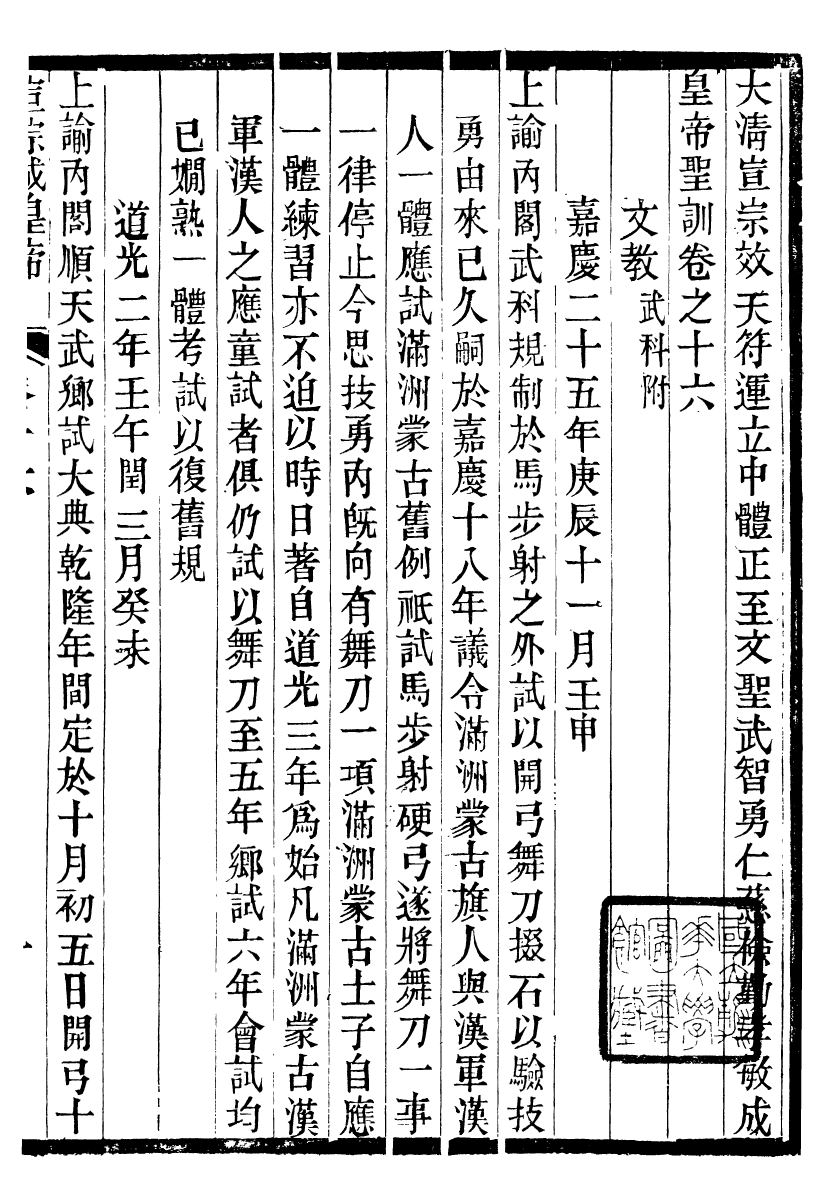 大清宣宗效天符運立中體正至文聖武智勇仁慈儉勤孝敏成
皇帝聖訓卷之十六
文教武科附
嘉慶二十五年庚辰十一月壬申
上諭內閣武科規制於馬步射之外試以開弓舞刀掇石以驗技
勇由來已久嗣於嘉慶十八年議令滿洲蒙古旗人與漢軍漢
人一體應試滿洲蒙古舊例祇試馬步射硬弓遂將舞刀一事
一律停止今思技勇內既向有舞刀一項滿洲蒙古士子自應
一體練習亦不迫以時日著自道光三年爲始凡滿洲蒙古漢
軍漢人之應童試者俱仍試以舞刀至五年鄉試六年會試均
已嫺熟一體考試以復舊規
道光二年壬午閏三月癸未
上諭內閣順天武鄉試大典乾隆年間定於十月初五日開弓十
宣宗成皇帝 卷十六 一
國立
華大學
圖書
館藏